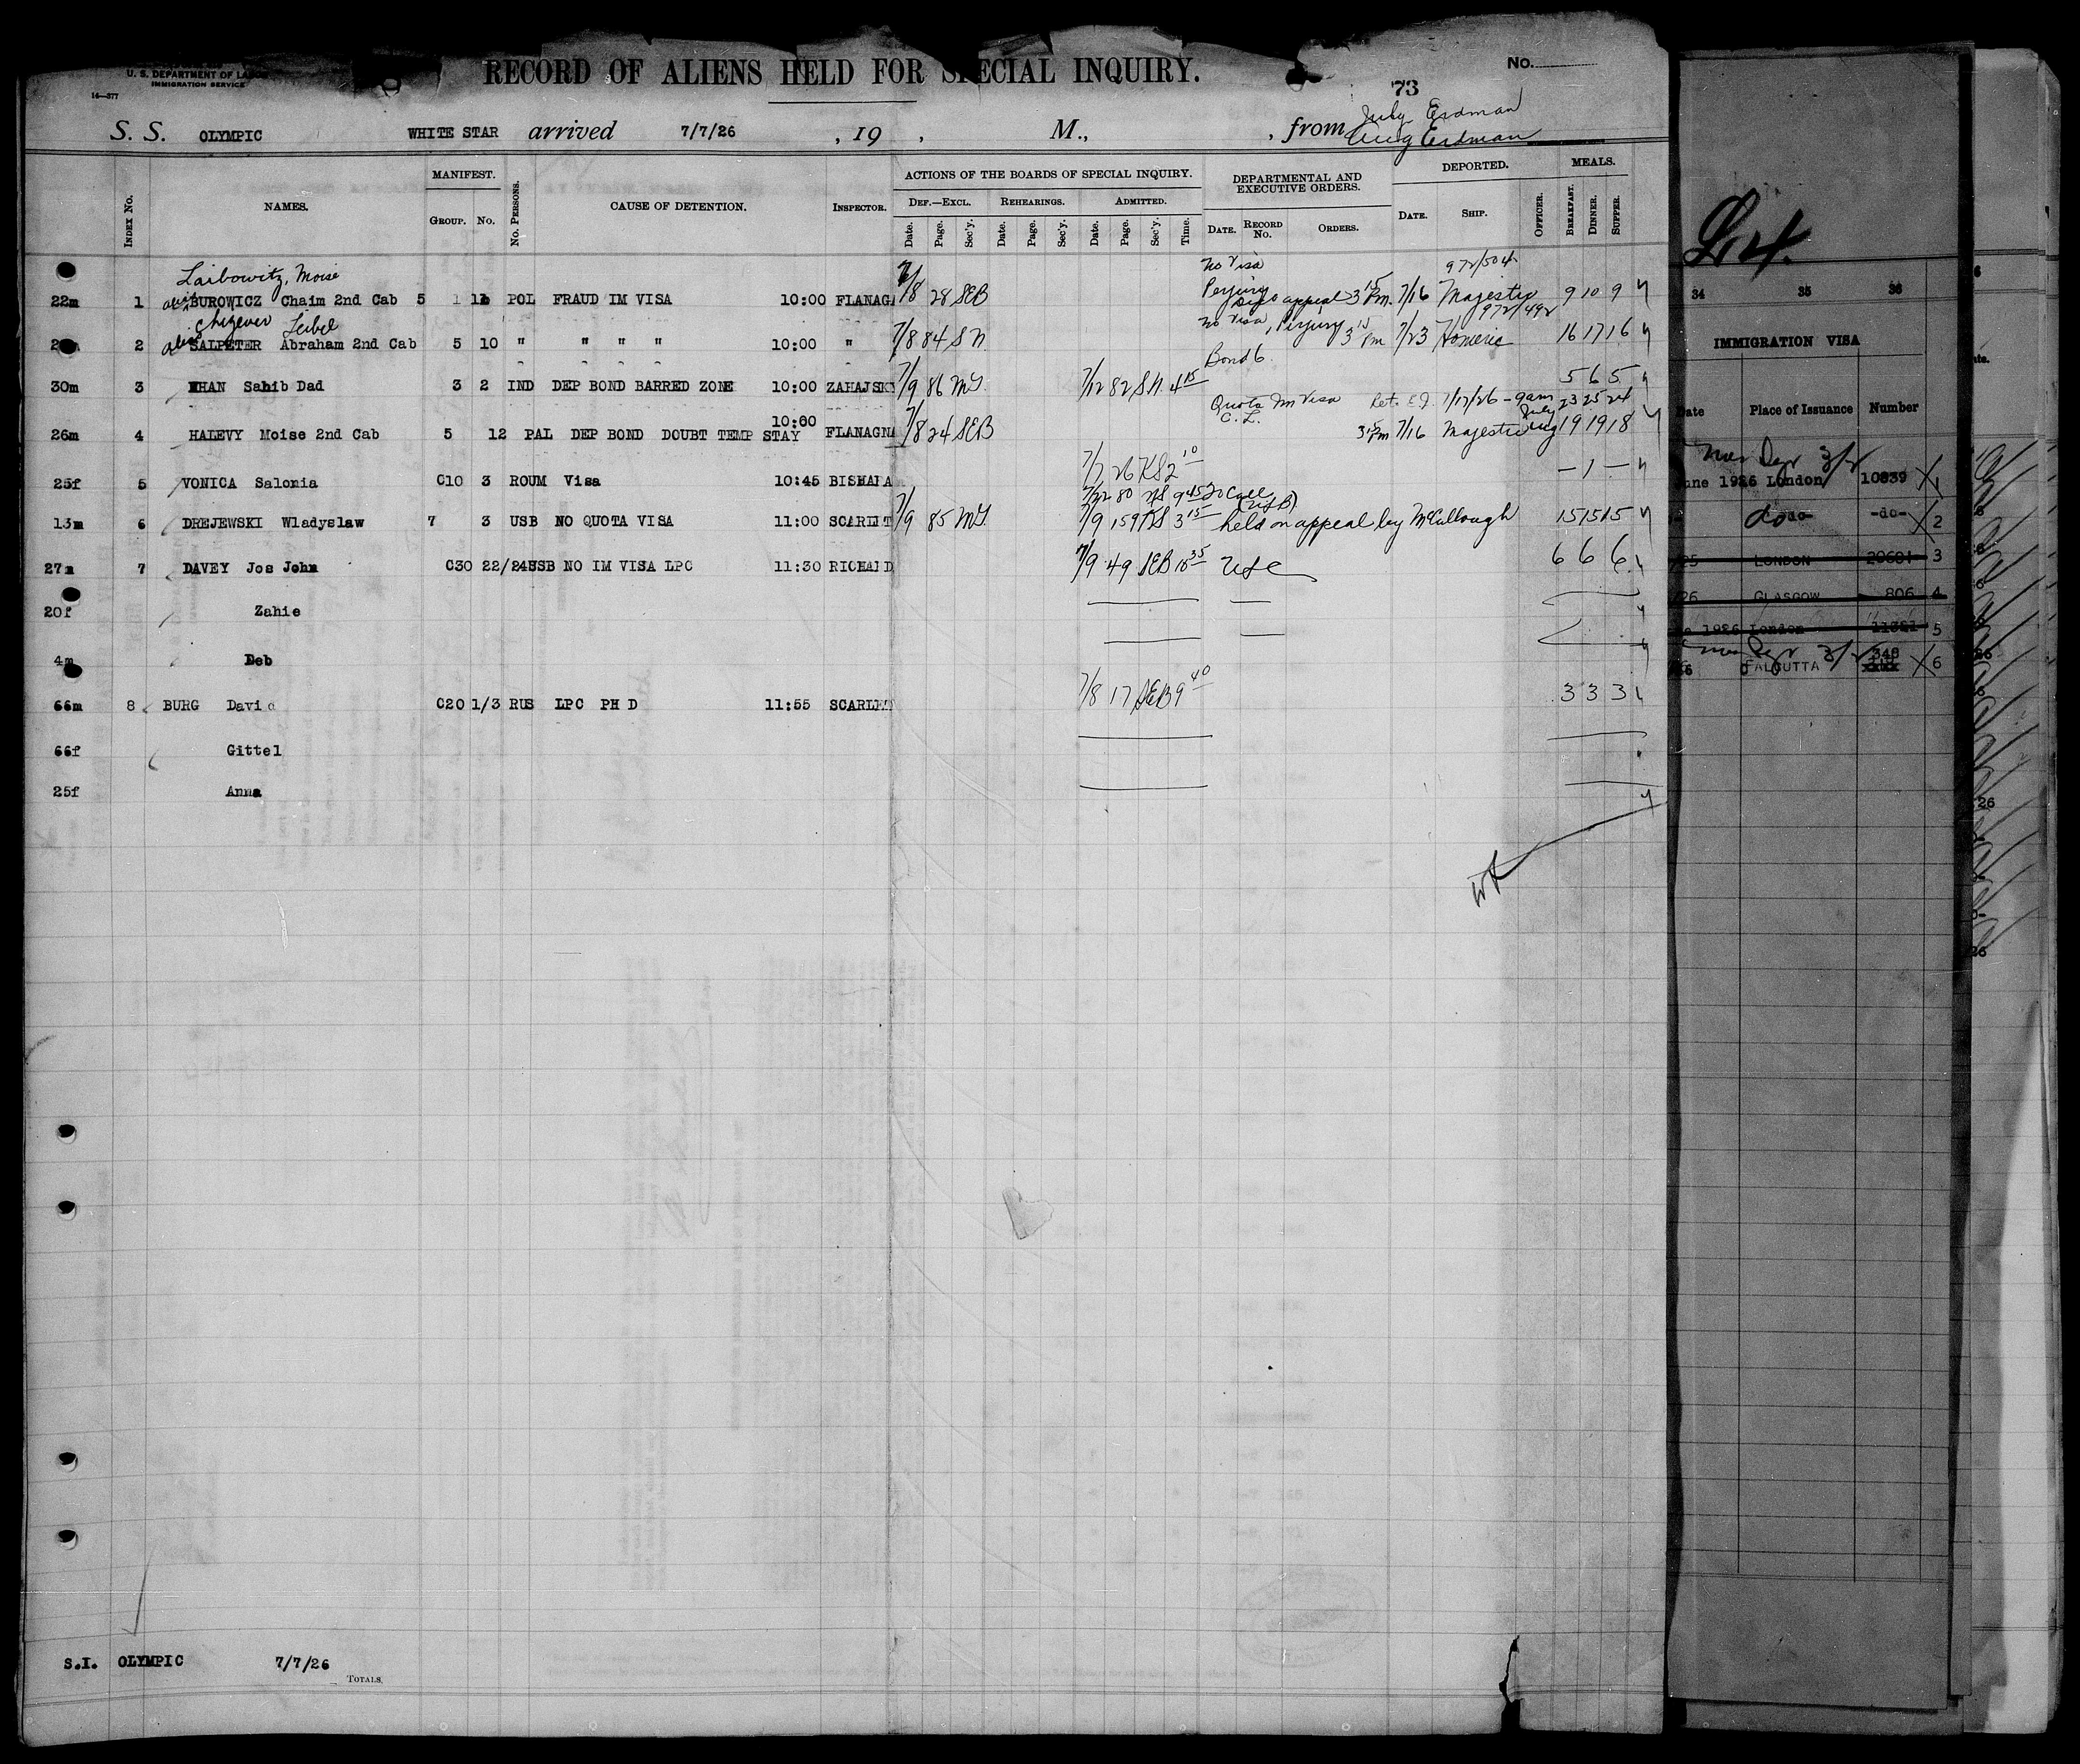 U. S. DEPARTMENT OF LABOR
IMMIGRATION SERVICE
14—377
RECORD OF ALIENS HELD FOR SPECIAL INQUIRY.
No.
73
July Erdman
S. S. OLYMPIC WHITE STAR arrived 7/7/26 , 19 , M., , from Aug Erdman
INDEX NO. NAMES. MANIFEST. GROUP. NO. NO. PERSONS. CAUSE OF DETENTION. INSPECTOR. ACTIONS OF THE BOARDS OF SPECIAL INQUIRY. DEPARTMENTAL AND EXECUTIVE ORDERS. DEPORTED. MEALS.
DEF.—EXCL. REHEARINGS. ADMITTED.
Date. Page. Sec'y. Date. Page. Sec'y. Date. Page. Sec'y. Time. DATE. RECORD NO. ORDERS. DATE. SHIP. OFFICER. BREAKFAST. DINNER. SUPPER.
Laibowitz, Moise No Visa 972/504
22m 1 alias BUROWICZ Chaim 2nd Cab 5 1 POL FRAUD IM VISA 10:00 FLANAGA 7/8 28 SEB Perjury appeal 3 15 Pm. 7/16 Majestic 9 10 9
Chizever Leibel No Visa, Perjury 972/492
2 alias SALPETER Abraham 2nd Cab 5 10 " " " " 10:00 " 7/8 84 SN 3 15 Pm 7/23 Homeric 16 17 16
Bond 6.
30m 3 KHAN Sahib Dad 3 2 IND DEP BOND BARRED ZONE 10:00 ZAHAJSKY 7/9 86 MG. 7/12 82 SN 4 15 5 6 5
Quota Im Visa Ret. E.I. 7/17/26 - 9am July 23 25 24
26m 4 HALEVY Moise 2nd Cab 5 12 PAL DEP BOND DOUBT TEMP STAY 10:00 FLANAGNA 7/8 24 SEB C. L. 3 15 Pm 7/16 Majestic Aug 19 19 18
25f 5 VONICA Salomia C10 3 ROUM Visa 10:45 BISHARA 7/7 26 KS 2 10 — 1 —
7/22 80 NS 9 45
13m 6 DREJEWSKI Wladyslaw 7 3 USB NO QUOTA VISA 11:00 SCARLET 7/9 85 MG. 7/9 159 KS 3 15 held on appeal by McCullough 15 15 15
27m 7 DAVEY Jos John C30 22/24 USB NO IM VISA LPC 11:30 RICHARD 7/9 49 SEB 10 35 USC 6 6 6
20f Zahie
4m Deb
66m 8 BURG David C20 1/3 RUS LPC PH D 11:55 SCARLET 7/8 17 SEB 9 40 3 3 3
66f Gittel
25f Anna
S.I. OLYMPIC 7/7/26
TOTALS
34 35 36
IMMIGRATION VISA
Date Place of Issuance Number
une 1926 London 10839 1
do -do- -do- 2
25 LONDON 20681 3
26 GLASGOW 806 4
1926 London 11321 5
CALCUTTA 348 6